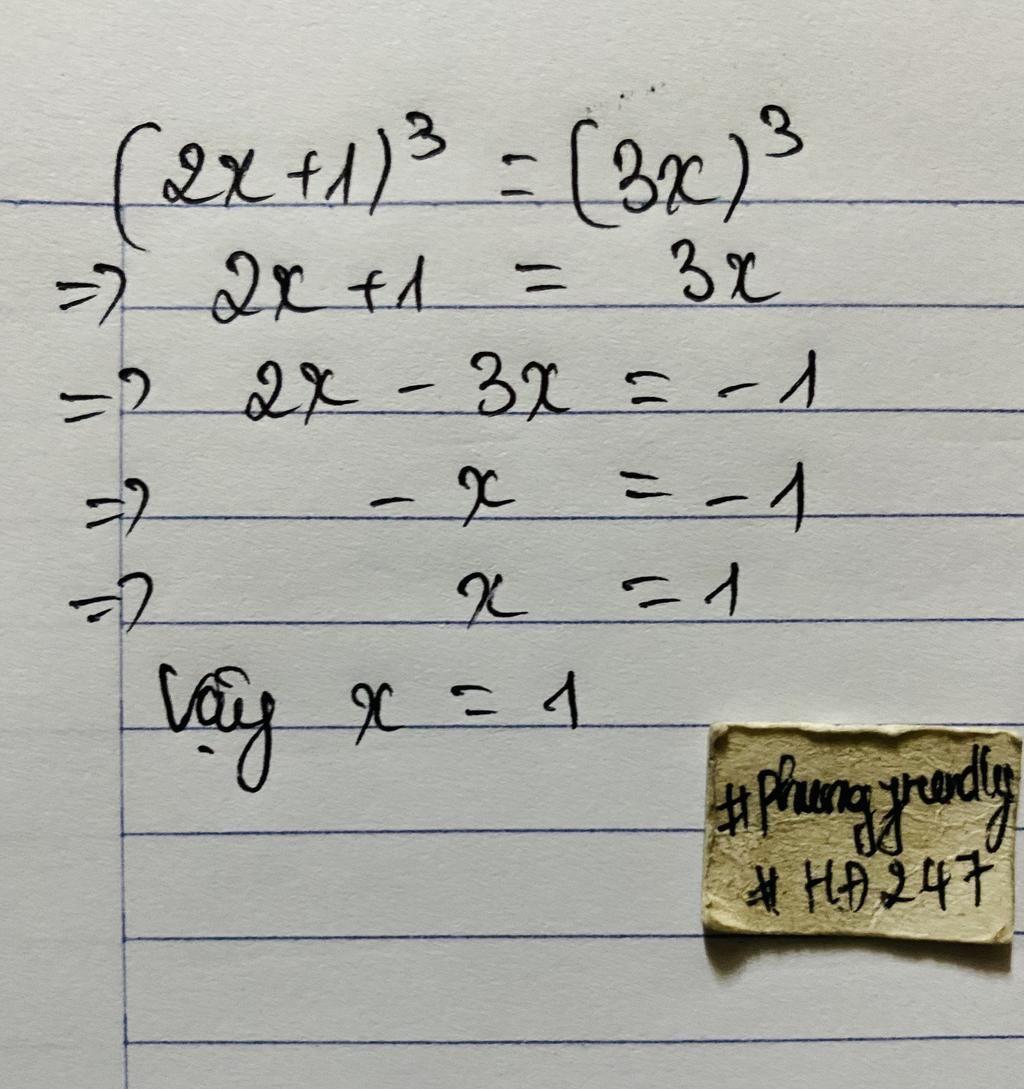 (2x+1)³ = (3x)³
=> 2x+1 = 3x
=> 2x - 3x = -1
=> - x = -1
=> x = 1
Vậy x = 1
#Phunggyrendly
# HA247